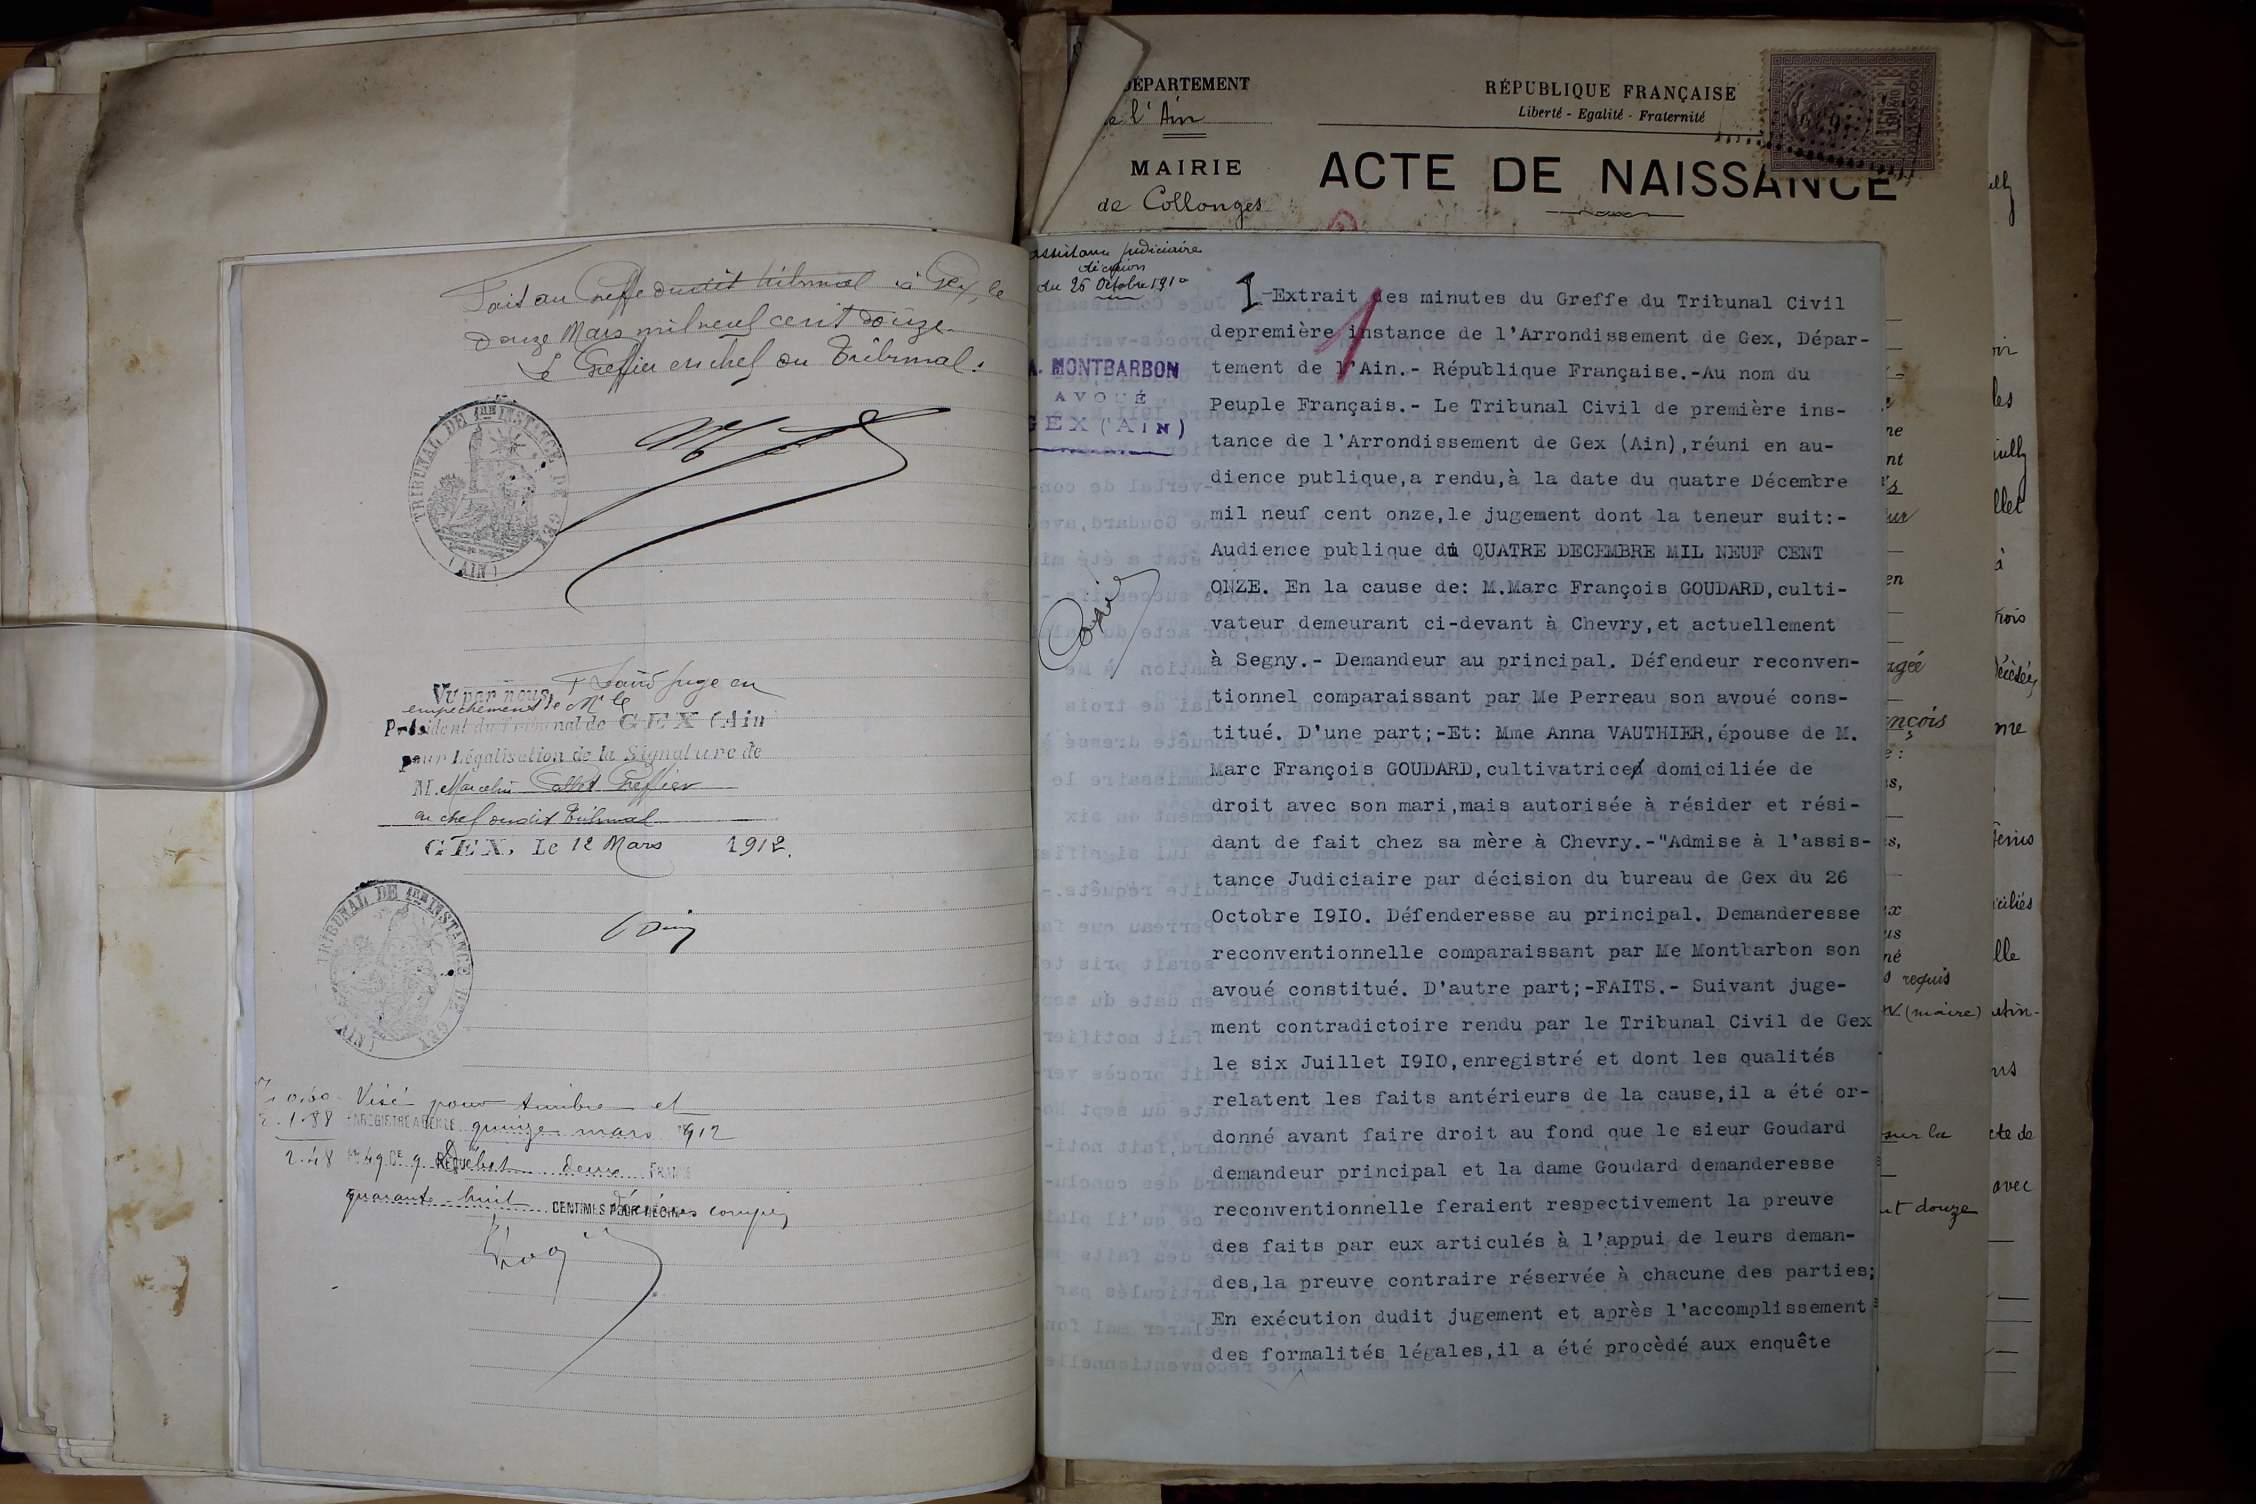 Fait au Greffe dudit tribunal à Gex, le
douze Mars mil neuf cent douze.
Le Greffier en chef du Tribunal.
TRIBUNAL DE 1ERE INSTANCE DE GEX
(AIN)
Vu par nous, juge en
empêchement de Mr le
Président du Tribunal de GEX (Ain
pour Légalisation de la Signature de
M. Marcelin Greffier
en chef dudit Tribunal
GEX, Le 12 Mars 1912.
TRIBUNAL DE 1ERE INSTANCE DE GEX
(AIN)
0,60 Visé pour timbre et
1.88 ENREGISTRÉ A quinze mars 1912
2.48 49 Ce 9 deux FRANCS
quarante-huit CENTIMES décimes compris
DÉPARTEMENT
de l'Ain
MAIRIE
de Collonges
RÉPUBLIQUE FRANÇAISE
Liberté - Egalité - Fraternité
ACTE DE NAISSANCE
assistance judiciaire
décision
du 26 Octobre 1910
A. MONTBARBON
AVOUÉ
GEX (AIN)
Copie
1
I.-Extrait des minutes du Greffe du Tribunal Civil
depremière instance de l'Arrondissement de Gex, Dépar-
tement de l'Ain.- République Française.-Au nom du
Peuple Français.- Le Tribunal Civil de première ins-
tance de l'Arrondissement de Gex (Ain),réuni en au-
dience publique,a rendu,à la date du quatre Décembre
mil neuf cent onze,le jugement dont la teneur suit:-
Audience publique du QUATRE DECEMBRE MIL NEUF CENT
ONZE. En la cause de: M.Marc François GOUDARD,culti-
vateur demeurant ci-devant à Chevry,et actuellement
à Segny.- Demandeur au principal. Défendeur reconven-
tionnel comparaissant par Me Perreau son avoué cons-
titué. D'une part;-Et: Mme Anna VAUTHIER,épouse de M.
Marc François GOUDARD,cultivatrice domiciliée de
droit avec son mari,mais autorisée à résider et rési-
dant de fait chez sa mère à Chevry.-"Admise à l'assis-
tance Judiciaire par décision du bureau de Gex du 26
Octobre I9I0. Défenderesse au principal. Demanderesse
reconventionnelle comparaissant par Me Montbarbon son
avoué constitué. D'autre part;-FAITS.- Suivant juge-
ment contradictoire rendu par le Tribunal Civil de Gex
le six Juillet I9I0,enregistré et dont les qualités
relatent les faits antérieurs de la cause,il a été or-
donné avant faire droit au fond que le sieur Goudard
demandeur principal et la dame Goudard demanderesse
reconventionnelle feraient respectivement la preuve
des faits par eux articulés à l'appui de leurs deman-
des,la preuve contraire réservée à chacune des parties;
En exécution dudit jugement et après l'accomplissement
des formalités légales,il a été procèdé aux enquête